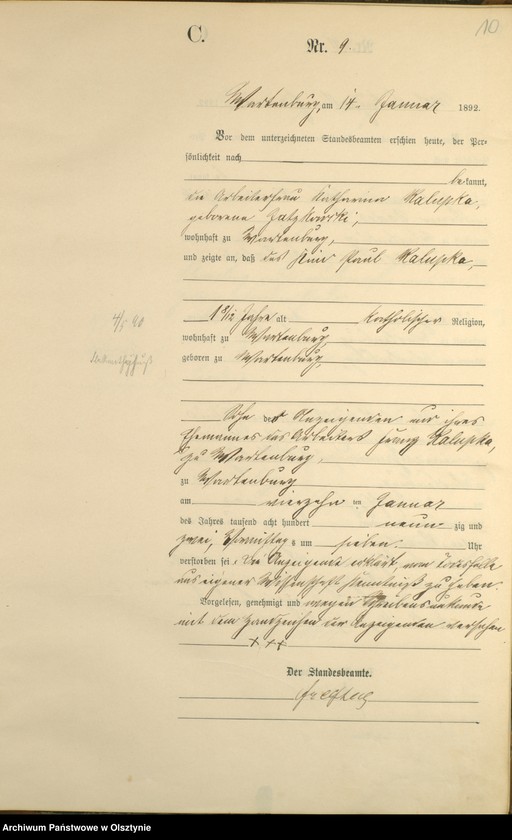 C.
10
Nr. 9.
Wartenburg, am 14. Januar 1892.
Vor dem unterzeichneten Standesbeamten erschien heute, der Per-
sönlichkeit nach
be kannt,
die Arbeiterfrau Katharina Kalupka,
geborene
wohnhaft zu Wartenburg,
und zeigte an, daß das Kind Paul Kalupka,
1 8/12 Jahre alt katholischer Religion,
wohnhaft zu Wartenburg,
geboren zu Wartenburg,
Sohn der Anzeigenden und ihres
Ehemannes des Arbeiters Kalupka,
zu Wartenburg,
zu Wartenburg
am vierzehn ten Januar
des Jahres tausend acht hundert neun zig und
zwei, Vormittags um sieben Uhr
verstorben sei. Die Anzeigende erklärt, vom Todesfalle
aus eigener Wissenschaft Kenntniß zu haben.
Vorgelesen, genehmigt und wegen Schreibensunkunde
mit dem Handzeichen der Anzeigenden versehen
+ + +
Der Standesbeamte.
Archiwum Państwowe w Olsztynie